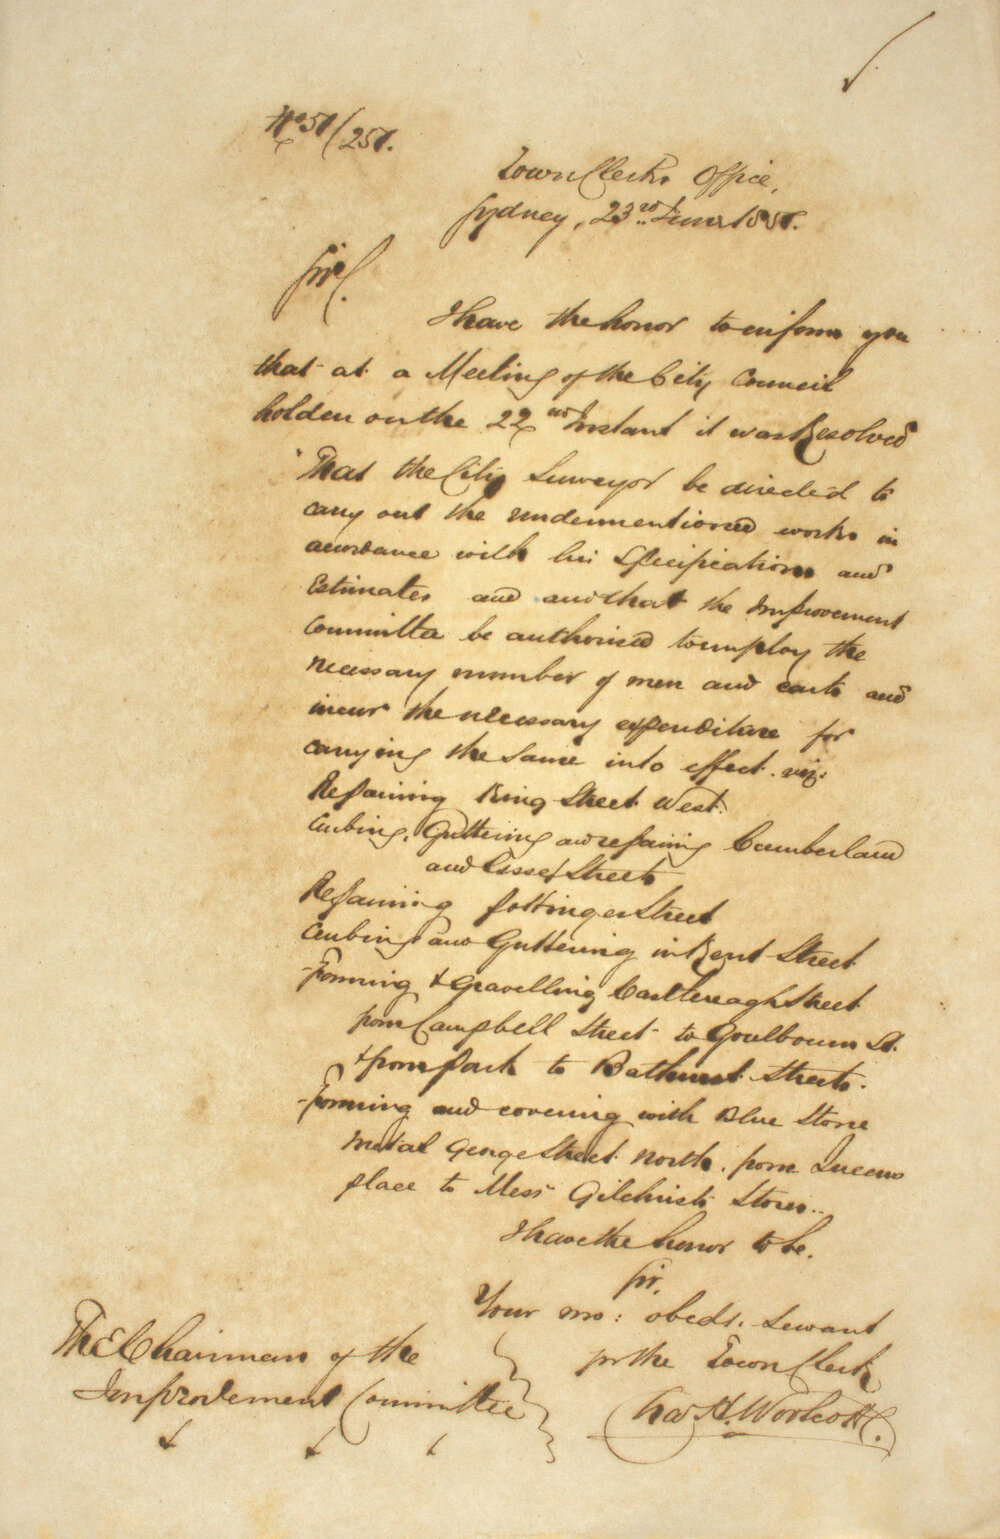 No 51/257.
Town Clerks Office,
Sydney, 23rd June 1857.
Sir,
I have the honor to inform you
that at a Meeting of the City Council
holden on the 22nd Instant it was Resolved
"That the City Surveyor be directed to
carry out the undermentioned works in
accordance with his Specifications and
Estimates and and that the Improvement
Committee be authorised to employ the
necessary number of men and carts and
incur the necessary expenditure for
carrying the same into effect. viz:
Repairing King Street West.
Curbing, Guttering and repairing Cumberland
and Essex Streets
Repairing Pottinger Street
Curbing and Guttering in Kent Street
Forming & Gravelling Castlereagh Street
from Campbell Street to Goulbourn St.
& from Park to Bathurst Streets.
Forming and covering with Blue Stone
metal George Street North. from Queens
place to Mess Gilchrists Stores..
I have the honor to be.
Sir.
Your mo: obedt. Servant
for the Town Clerk
Chas H. Woolcott.
The Chairman of the
Improvement Committee